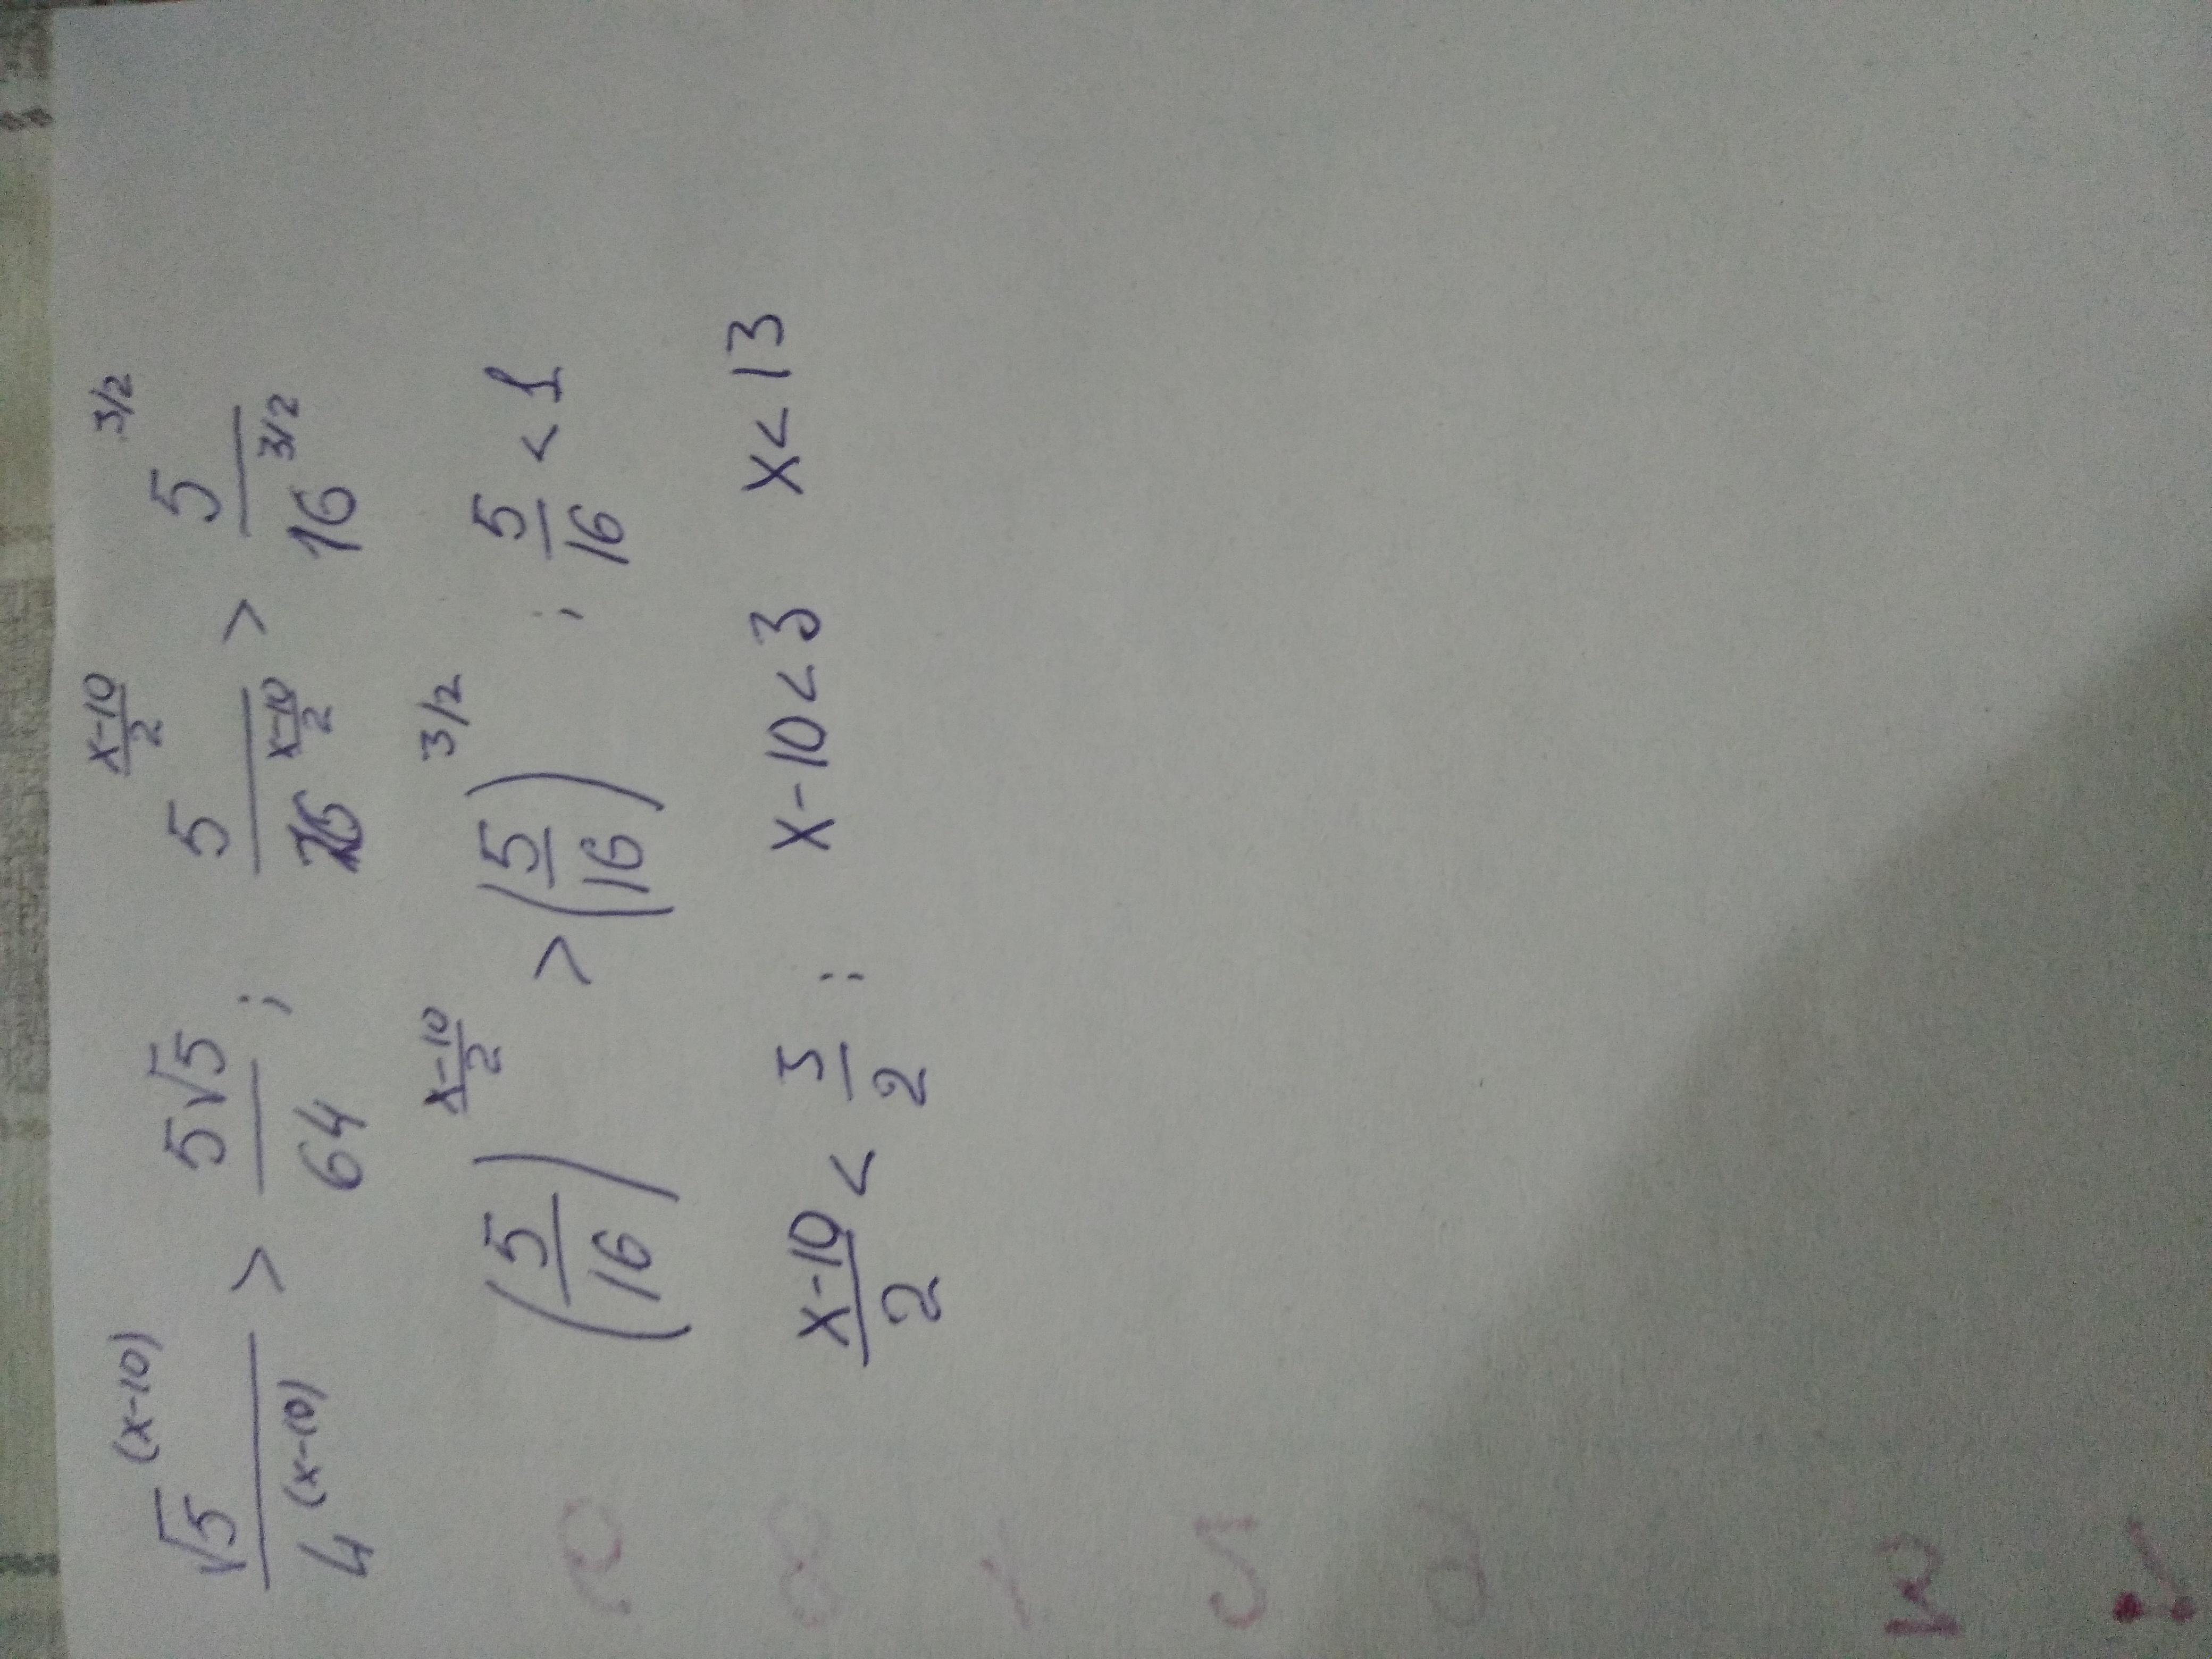 √5^(x-10) / 4^(x-10) > 5√5 / 64 ; 5^((x-10)/2) / 16^((x-10)/2) > 5^(3/2) / 16^(3/2)
(5/16)^((x-10)/2) > (5/16)^(3/2) ; 5/16 < 1
(x-10)/2 < 3/2 ; x-10<3 x<13